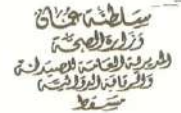 سلطنة عمان
وزارة الصحة
المديرية العامة للصيدلة
والرقابة الدوائية
مسقط